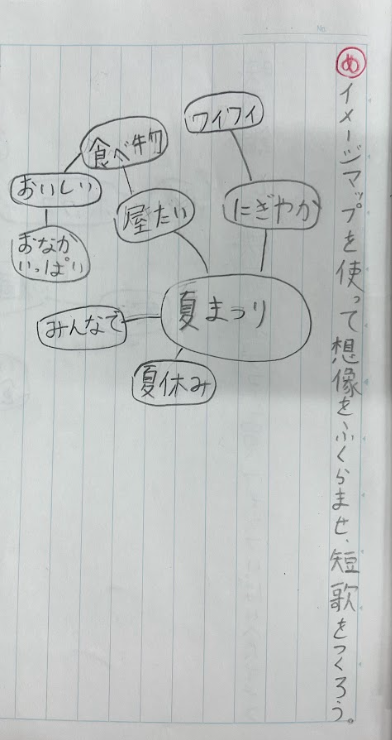 め イメージマップを使って想像をふくらませ、短歌をつくろう。
ワイワイ
にぎやか
食べ物
屋だい
おいしい
おなか
いっぱい
夏まつり
みんなで
夏休み